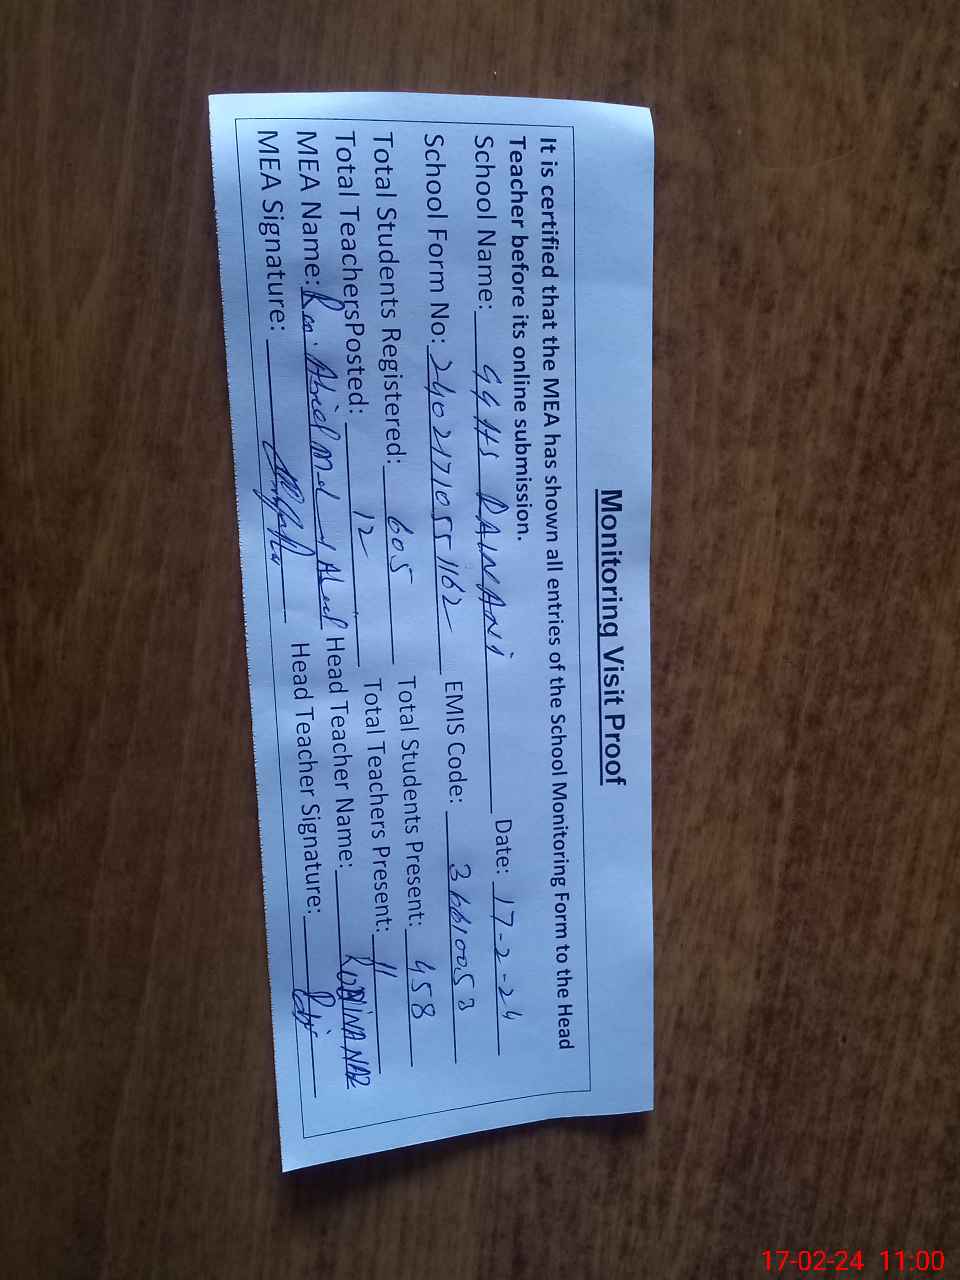 Monitoring Visit Proof
It is certified that the MEA has shown all entries of the School Monitoring Form to the Head
Teacher before its online submission.
School Name: GGHS RAINANI Date: 17-2-24
School Form No: 24021710551162 EMIS Code: 36610053
Total Students Registered: 605 Total Students Present: 458
Total TeachersPosted: 12 Total Teachers Present: 11
MEA Name: Head Teacher Name: RUBINA NAZ
MEA Signature: Head Teacher Signature:
17-02-24 11:00